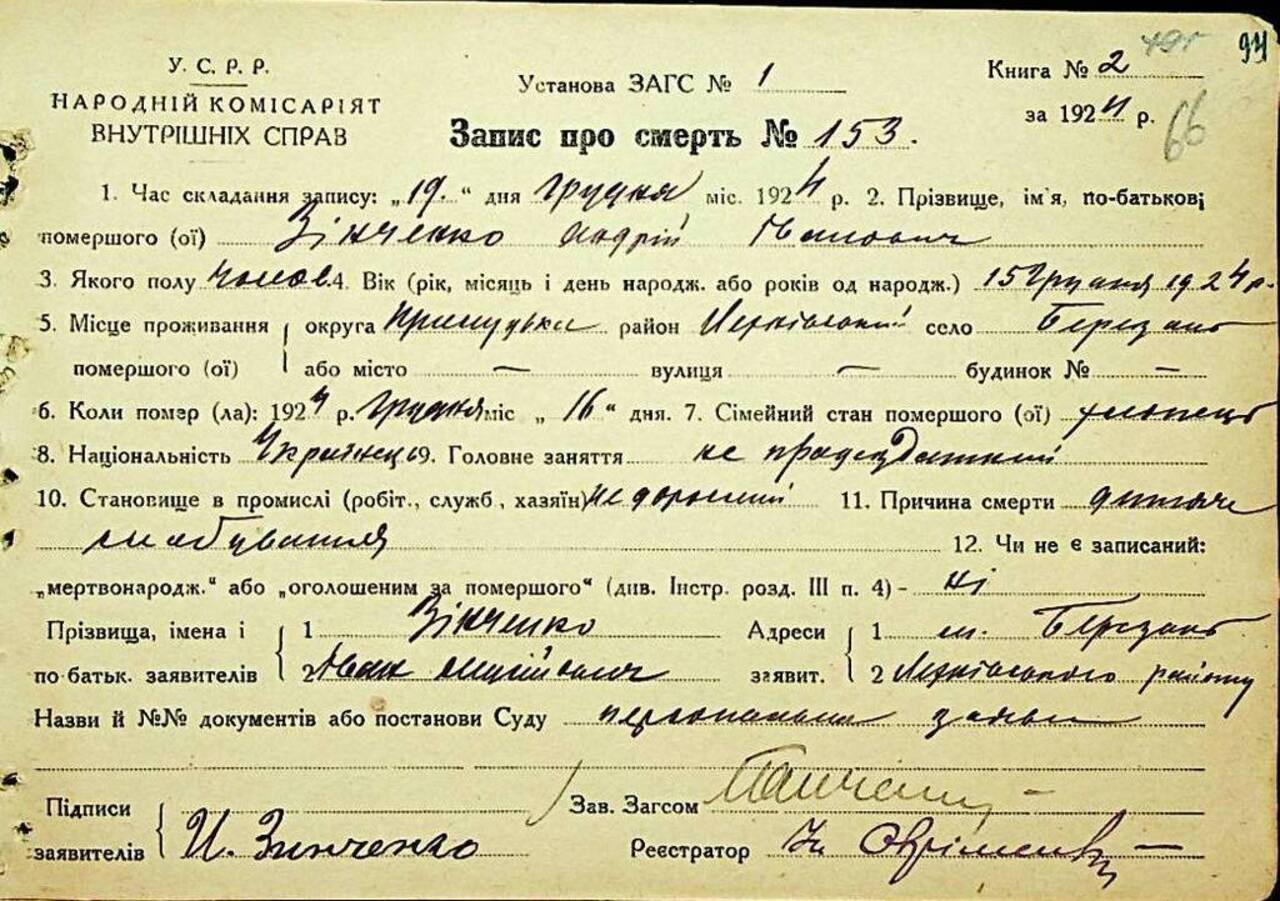 94
У. С. Р. Р.
НАРОДНІЙ КОМІСАРІЯТ
ВНУТРІШНІХ СПРАВ
Установа ЗАГС № 1
Книга № 2
за 1924 р.
66
Запис про смерть № 153.
1. Час складання запису: „19.“ дня грудня міс. 1924 р. 2. Прізвище, ім'я, по-батькові
помершого (ої) Зінченко Андрій Іванович
3. Якого полу чолов. 4. Вік (рік, місяць і день народж. або років од народж.) 15 грудня 1924 р.
5. Місце проживання помершого (ої) округа Прилуцька район село Березань
або місто — вулиця — будинок № —
6. Коли помэр (ла): 1924 р. грудня міс „16“ дня. 7. Сімейний стан помершого (ої) хлопець
8. Національність Українець 9. Головне заняття не працездатний
10. Становище в промислі (робіт., служб, хазяїн) недорослий 11. Причина смерти дитяче
12. Чи не є записаний:
„мертвонародж.“ або „оголошеним за помершого“ (див. Інстр. розд. III п. 4) - ні
Прізвища, імена і по батьк. заявителів 1 Зінченко Адреси заявит. 1 м. Березань
2 Іван 2 району
Назви й №№ документів або постанови Суду персональна заява
Підписи заявителів И. Зинченко
Зав. Загсом
Реєстратор